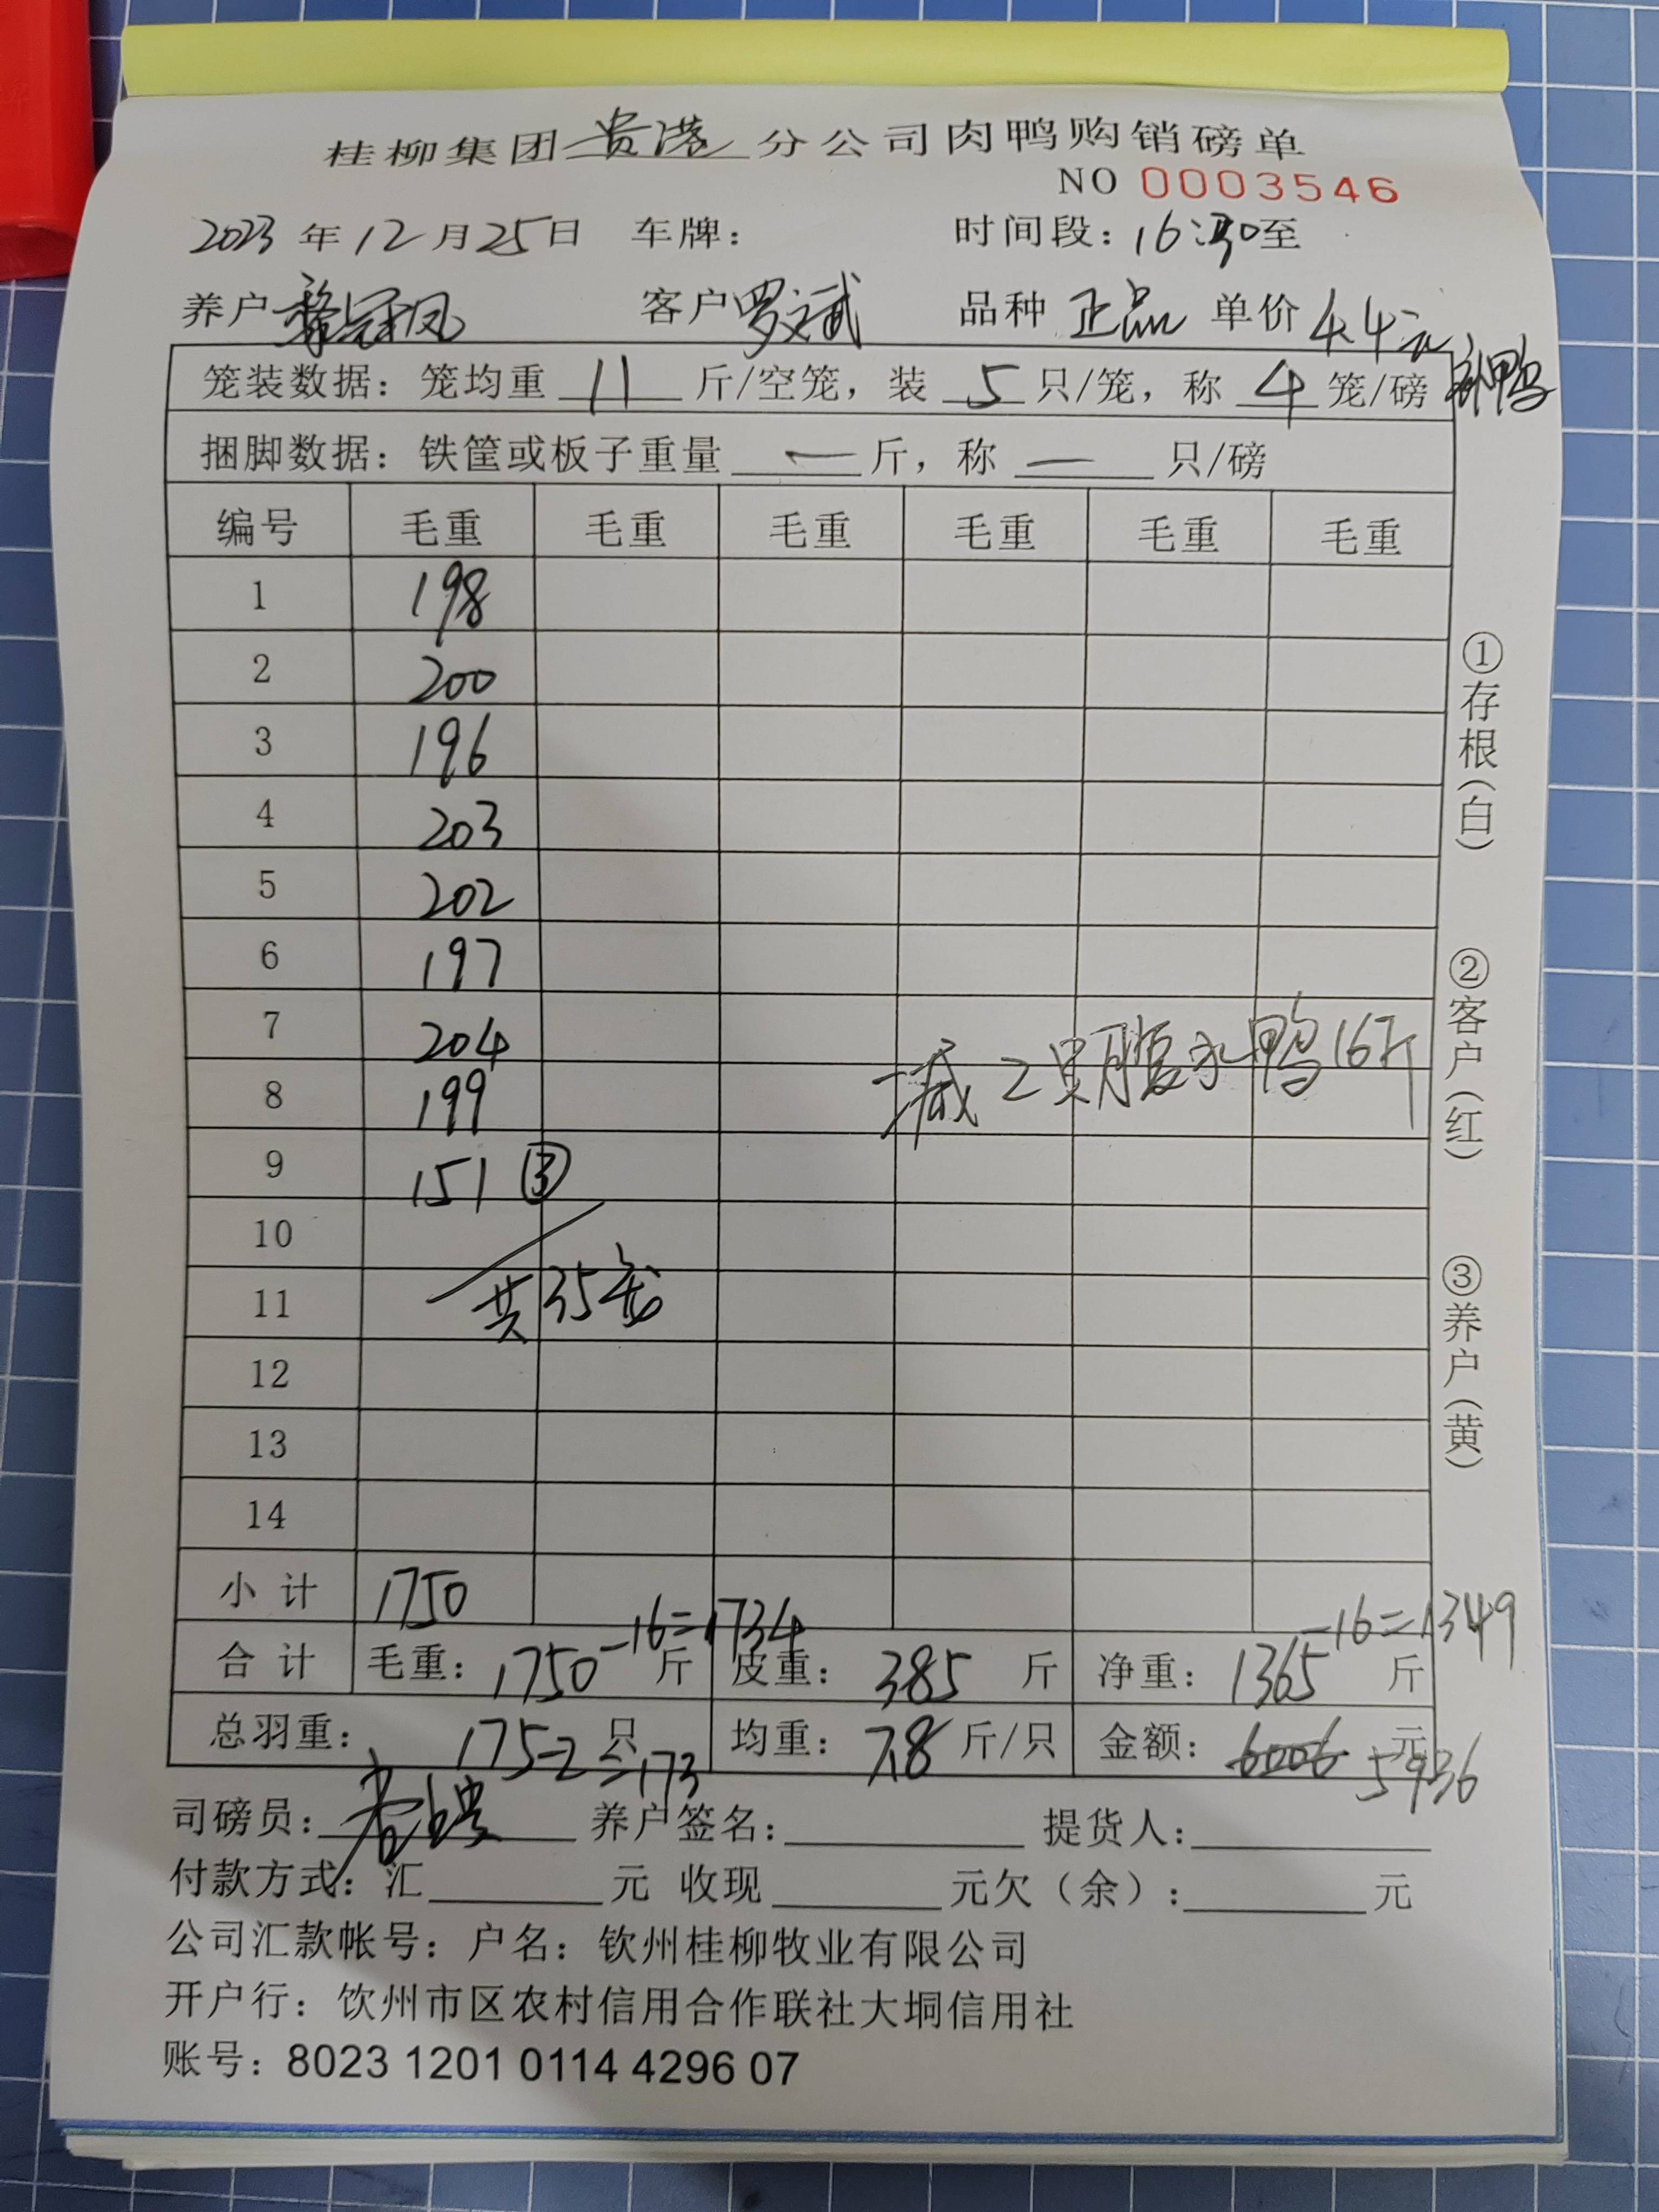 桂柳集团贵港分公司肉鸭购销磅单
NO 0003546
2023年12月25日 车牌： 时间段：16:30至
养户 冠凤 客户罗文斌 品种 正品 单价 4.4元
笼装数据：笼均重 11 斤/空笼，装 5 只/笼，称 4 笼/磅 鸭
捆脚数据：铁筐或板子重量 — 斤，称 — 只/磅
编号 毛重 毛重 毛重 毛重 毛重 毛重
1 198
2 200
3 196
4 203
5 202
6 197
7 204
8 199
减2只腹水鸭16斤
9 151 ③
10
11 共35笼
12
13
14
小计 1750
合计 毛重：1750-16=1734 斤 皮重：385 斤 净重：1365-16=1349 斤
总羽重：175-2=173 只 均重：7.8 斤/只 金额：6006 元 5936
司磅员： 养户签名： 提货人：
付款方式：汇 元 收现 元欠（余）： 元
公司汇款帐号：户名：钦州桂柳牧业有限公司
开户行：饮州市区农村信用合作联社大垌信用社
账号：8023 1201 0114 4296 07
①存根（白）
②客户（红）
③养户（黄）